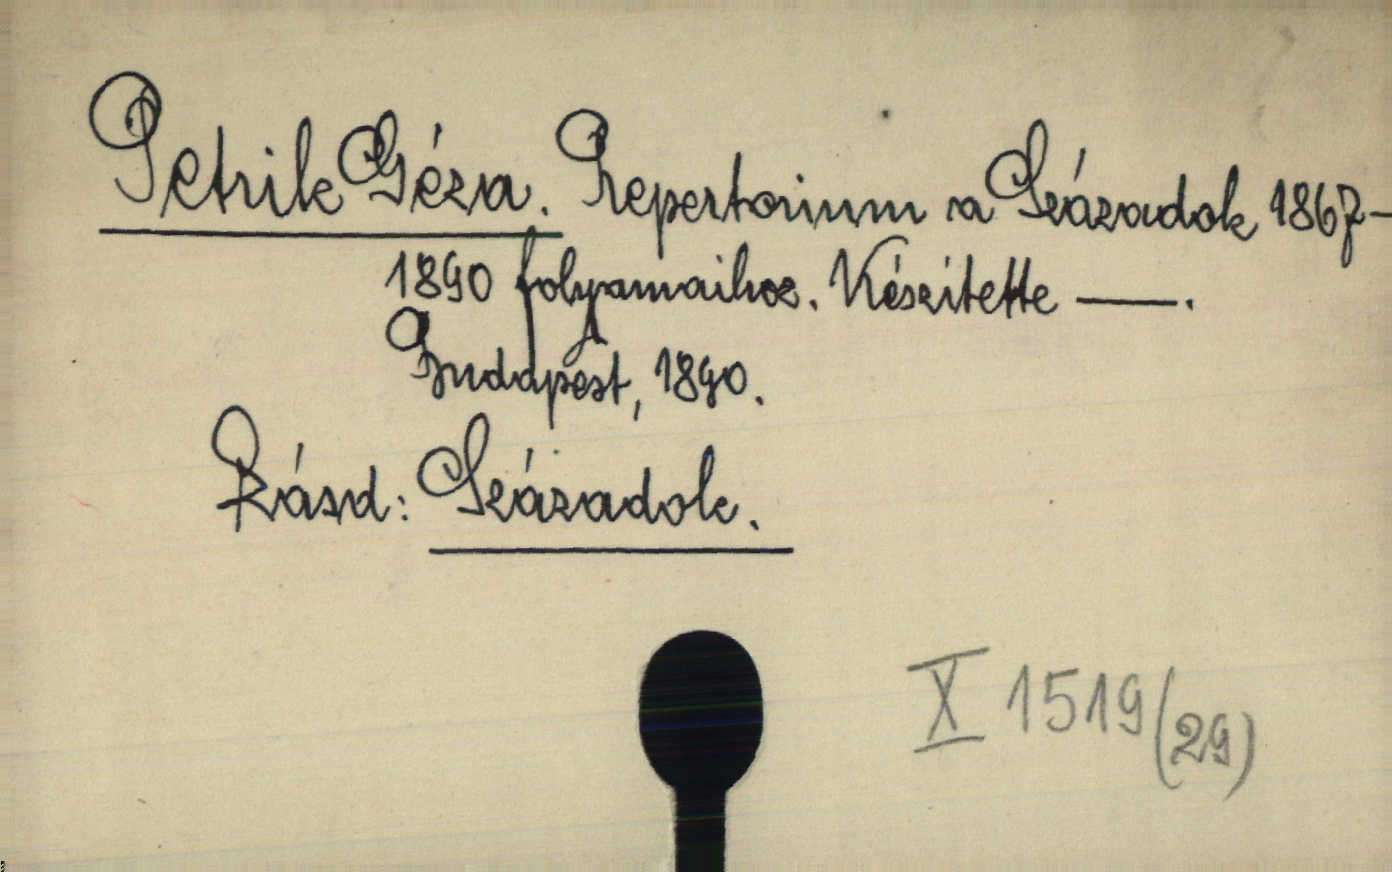 Petrik Géza. Repertorium a Századok 1867-
1890 folyamaihoz. Készitette —.
Budapest, 1890.
Rásd: Századok.
X 1519(29)